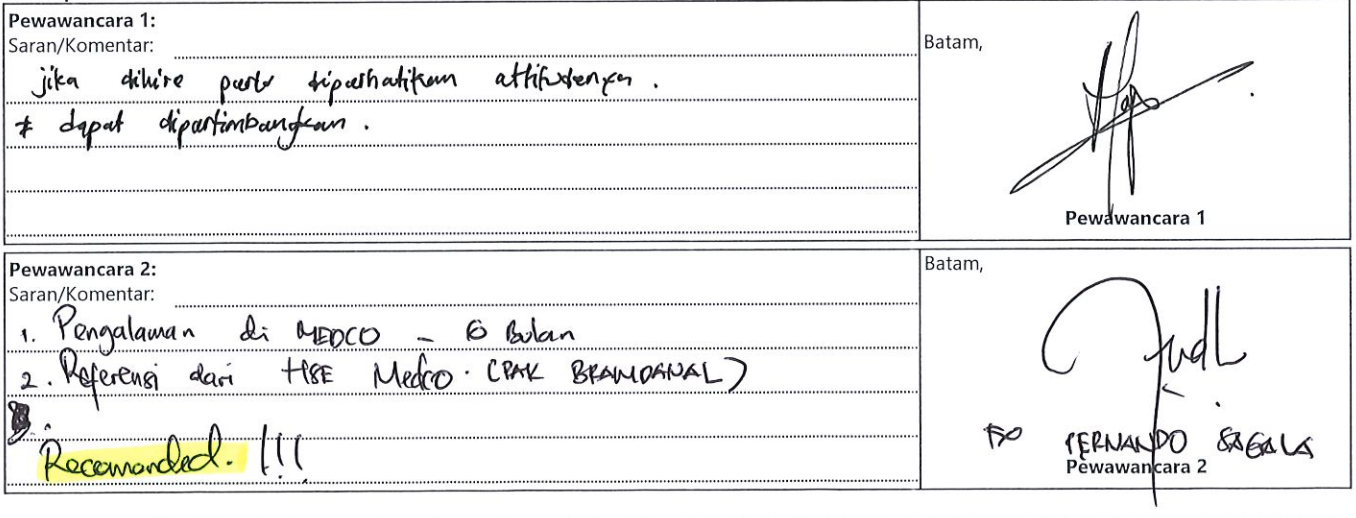 Pewawancara 1:
Saran/Komentar:
Batam,
jika dihire perlu diperhatikan attitudenya.
* dapat dipertimbangkan.
Pewawancara 1
Pewawancara 2:
Saran/Komentar:
Batam,
1. Pengalaman di MEDCO - 6 Bulan
2. Referensi dari HSE Medco. (PAK
Recomended. !!!
FERNANDO SAGALA
Pewawancara 2